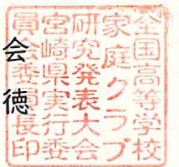 全国高等学校
家庭クラブ
研究発表大会
宮崎県実行委
員会委員長印
会
徳